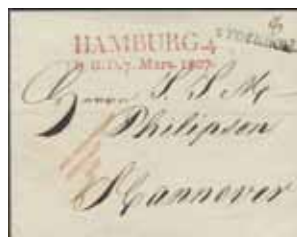 HAMBURG. 4
7. Mars. 1827.
Herrn S. S. M.
Philipson
Hannover